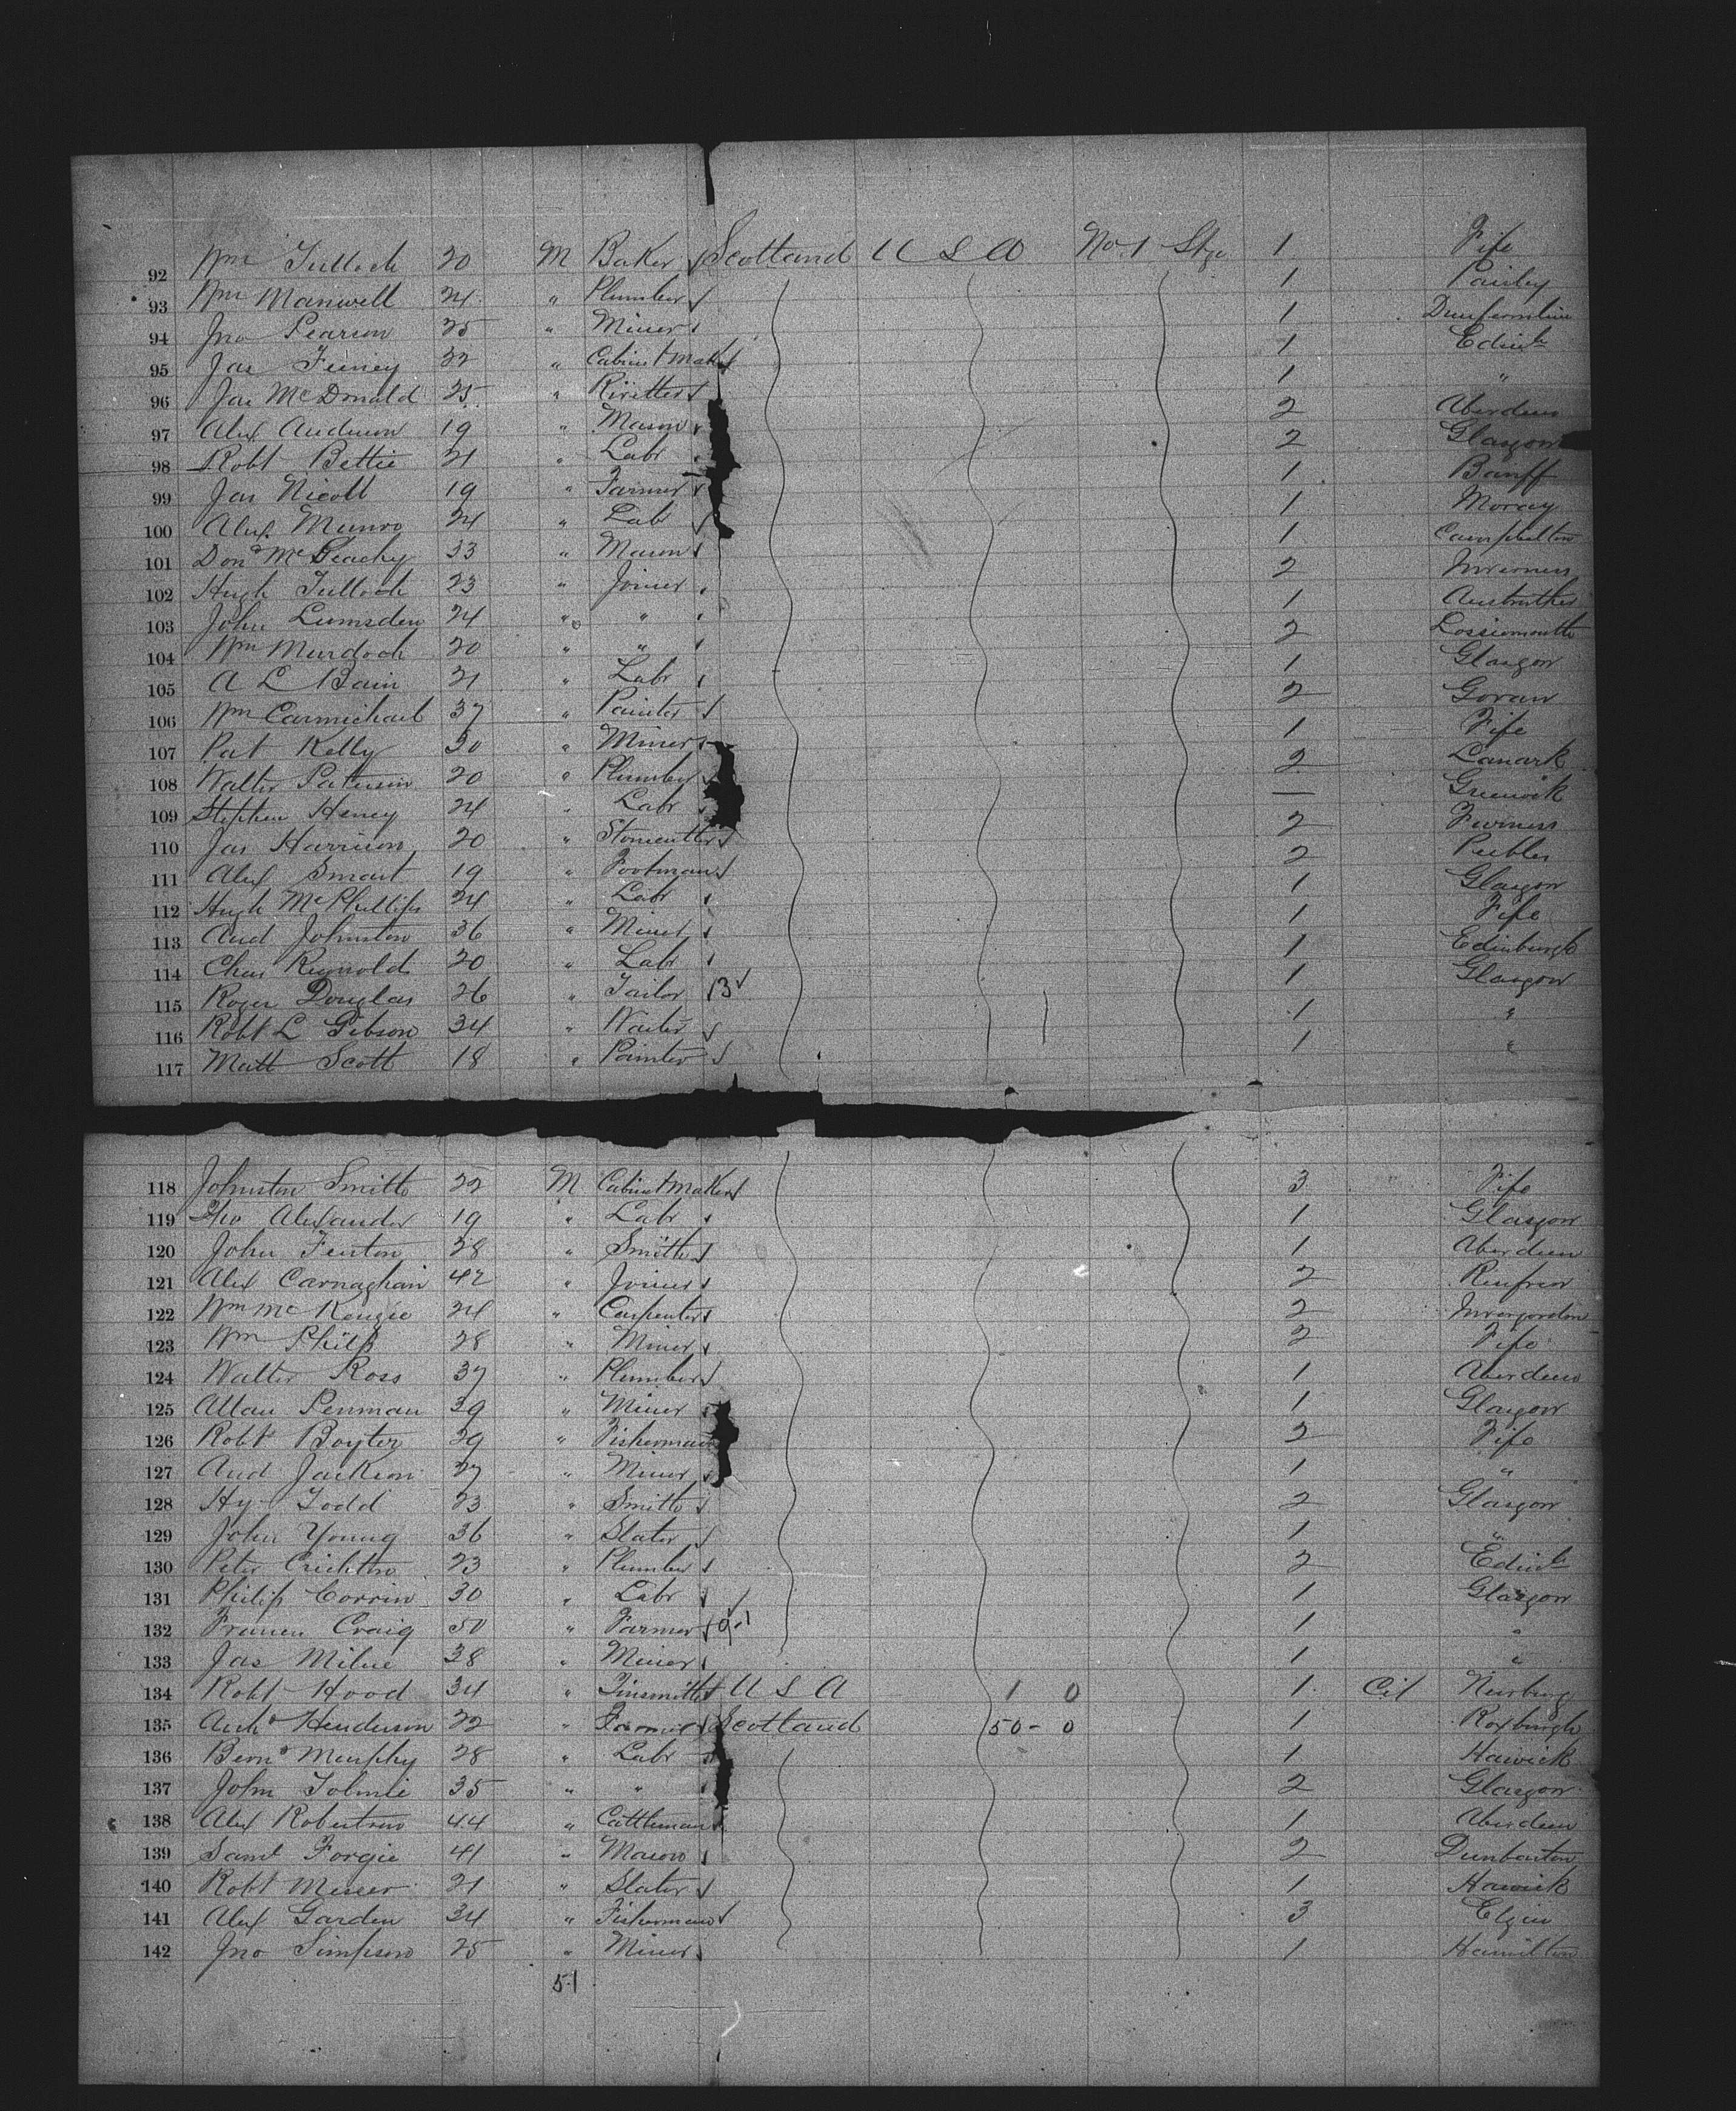 92 Wm Tulloch 20 M Baker Scotland U S A No 1 Stge 1 Fife
93 Wm Manwell 24 " Plumber 1 Paisley
94 Jno Pearson 25 " Miner 1 Dunfermline
95 Jas Feeney 32 " Cabinetmaker 1 Edinb
96 Jas McDonald 25 " Rivitter 1 "
97 Alex Anderson 19 " Mason 2 Aberdeen
98 Robt Bettie 21 " Labr 2 Glasgow
99 Jas Nicoll 19 " Farmer 1 Banff
100 Alex Munro 24 " Labr 1 Moray
101 Dond McGeachy 33 " Mason 1 Campbelton
102 Hugh Tulloch 23 " Joiner 2 Inverness
103 John Lumsden 24 " " 1 Anstruther
104 Wm Murdoch 20 " " 2 Lossiemouth
105 A L Bain 21 " Labr 1 Glasgow
106 Wm Carmichael 37 " Painter 2 Govan
107 Pat Kelly 30 " Miner 1 Fife
108 Walter Paterson 20 " Plumber 2 Lanark
109 Stephen Heney 24 " Labr — Greenock
110 Jas Harrison 20 " Stonecutter 2
111 Alex Smart 19 " Footman 2 Peebles
112 Hugh McPhillips 24 " Labr 1 Glasgow
113 And Johnston 36 " Miner 1 Fife
114 Chas Reynolds 20 " Labr 1 Edinburgh
115 Roger Douglas 26 " Tailor 13 1 Glasgow
116 Robt L Gibson 34 " Waiter 1 "
117 Matt Scott 18 " Painter 1 "
118 Johnston Smith 22 M Cabinetmaker 3 Fife
119 Alexander 19 " Labr 1 Glasgow
120 John Fenton 28 " Smith 1 Aberdeen
121 Alex Carnaghan 42 " Joiner 2 Renfrew
122 Wm McKenzie 24 " Carpenter 2 Invergordon
123 Wm Philp 28 " Miner 2 Fife
124 Walter Ross 37 " Plumber 1 Aberdeen
125 Allan Penman 39 " Miner 1 Glasgow
126 Robt Boyter 29 " Fisherman 2 Fife
127 And Jackson 27 " Miner 1 "
128 Hy Todd 23 " Smith 2 Glasgow
129 John Young 36 " Slater 1 "
130 Peter Crichton 23 " Plumber 2 Edinb
131 Philip Corrin 30 " Labr 1 Glasgow
132 Francis Craig 50 " Farmer 1 "
133 Jas Milne 38 " Miner 1 "
134 Robt Hood 34 " Tinsmith U S A 1 0 1 Cit Newburg
135 Archd Henderson 22 " Farmer Scotland 50 - 0 1 Roxburgh
136 Bernd Murphy 28 " Labr 1 Hawick
137 John Tolmie 35 " " 2 Glasgow
138 Alex Robertson 44 " Cattleman 1 Aberdeen
139 Saml Forgie 41 " Mason 2 Dunbarton
140 Robt Mercer 21 " Slater 1 Hawick
141 Alex Garden 34 " Fisherman 3 Elgin
142 Jno Simpson 25 " Miner 1 Hamilton
51